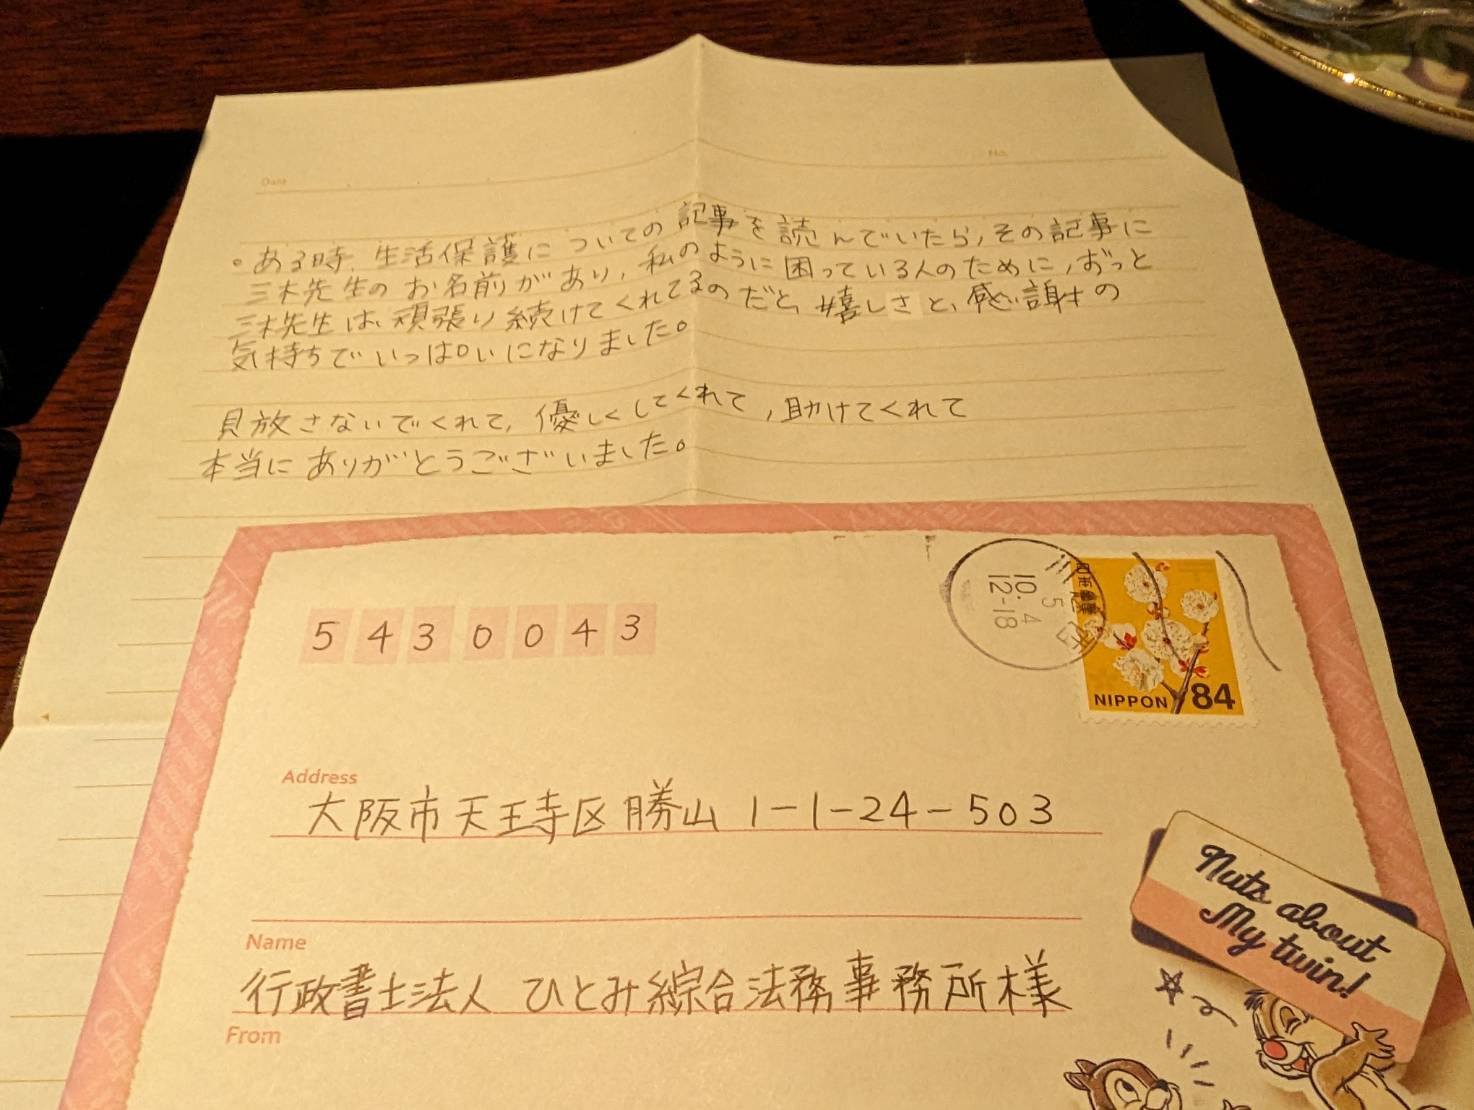 Date
No.
。ある時、生活保護についての記事を読んでいたら、その記事に
三木先生のお名前があり、私のように困っている人のために、ずっと
三木先生は、頑張り続けてくれてるのだと、嬉しさと、感謝の
気持ちでいっぱいになりました。
見放さないでくれて、優しくしてくれて、助けてくれて
本当にありがとうございました。
5430043
5
10.4
12-18
NIPPON 84
Address
大阪市天王寺区勝山 1-1-24-503
Name
行政書士法人 ひとみ綜合法務事務所様
From
Nuts about
My twin!